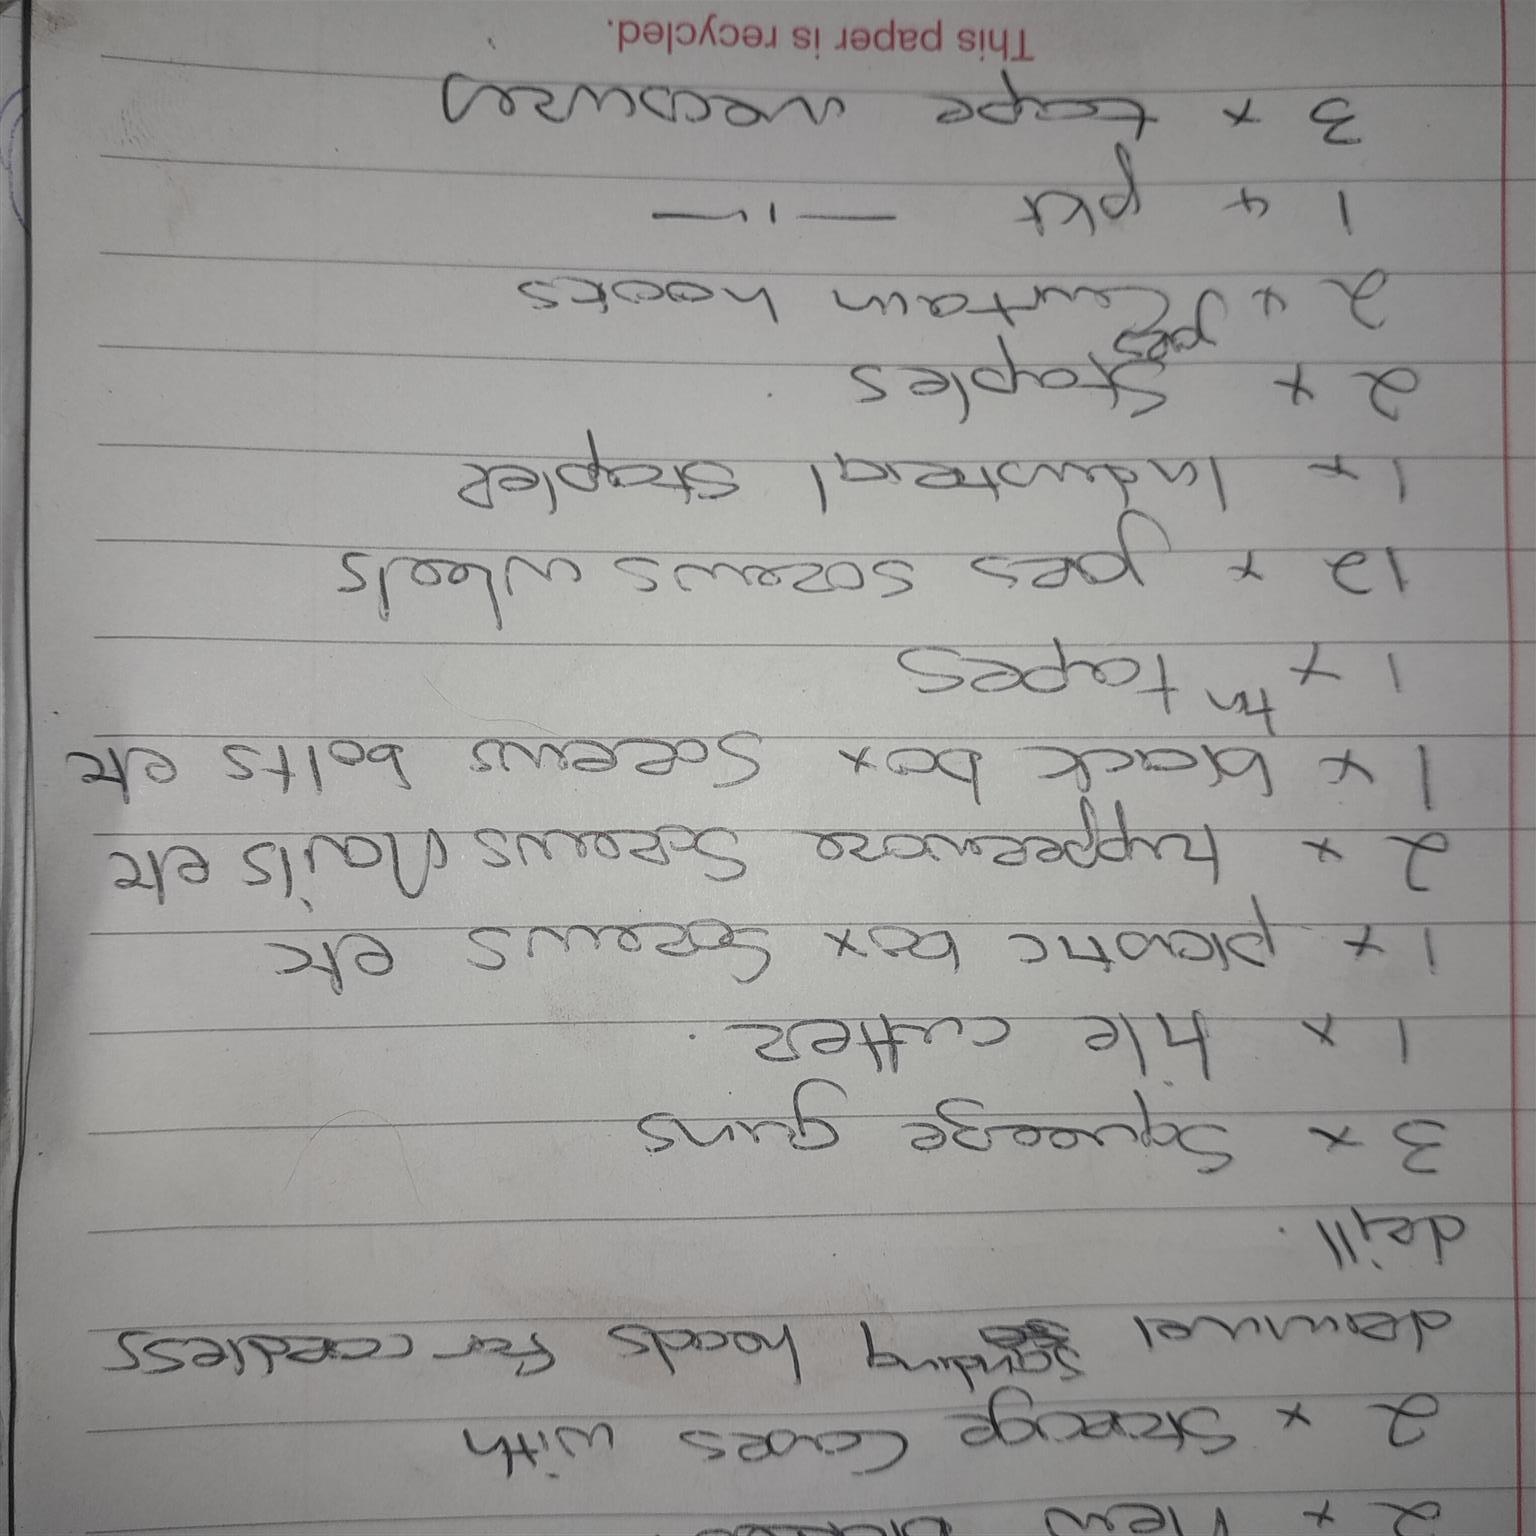 2 x New
2 x Storage Cases with
dremmel sanding heads for cordless
drill.
3 x Squeege guns
1 x tile cutter.
1 x plastic box Screws etc
2 x tupperware Screws Nails etc
1 x black box Screws bolts etc
1 x tapes
12 x pces screws wheels
1 x Industrial stapler
2 x Staples
2 x pces Curtain hooks
1 x pkt —11—
3 x tape measures
This paper is recycled.